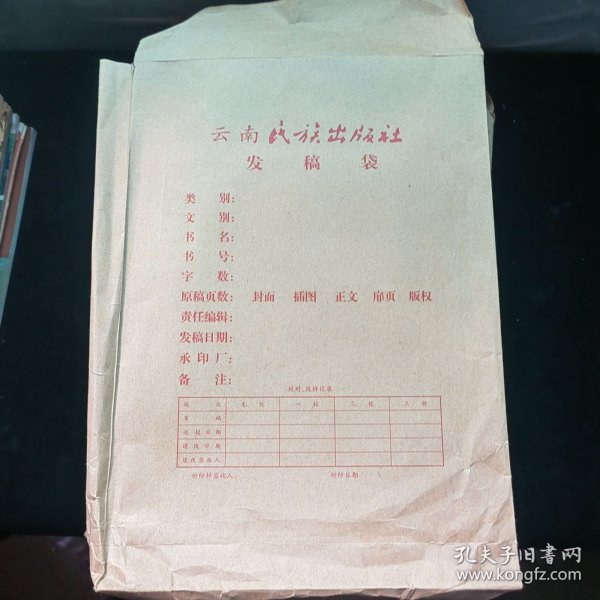 云南民族出版社
发稿袋
类别:
文别:
书名:
书号:
字数:
原稿页数: 封面 插图 正文 扉页 版权
责任编辑:
发稿日期:
承印厂:
备注:
校对、改样记录
校次 毛校 一校 二校 三校
页码
送校日期
退改日期
退改签收人
付印样签收人: 付印日期
孔夫子旧书网
www.kongfz.com